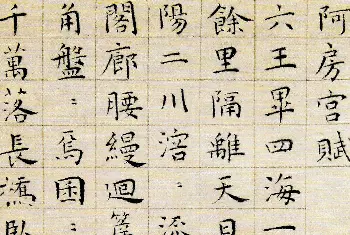 阿房宮賦
六王畢四海一
餘里隔離天日
陽二川溶〻流
閣廊腰縵迴簷
角盤〻焉囷〻
千萬落長橋臥